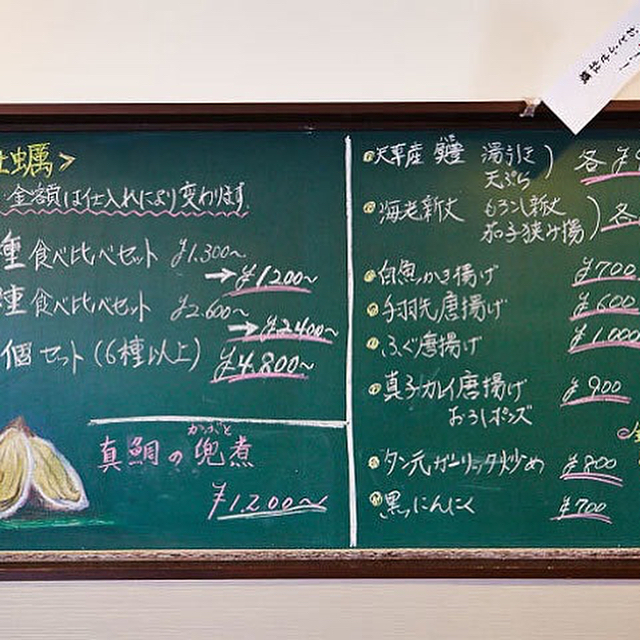 牡蠣>
金額は仕入れにより変わります
種 食べ比べセット ¥1,300~
→ ¥1200~
種 食べ比べセット ¥2,600~
→ ¥2,400~
個 セット(6種以上) ¥4,800~
かぶと
真鯛の兜煮
¥1,200~
天草産 鱧 湯引き
天ぷら
各 ¥
海老新丈 もろこし新丈
茄子挟み揚
各
白魚かき揚げ ¥700
手羽先唐揚げ ¥600
ふぐ唐揚げ ¥1,000
真子カレイ唐揚げ ¥900
おろしポンズ
タン元ガーリック炒め ¥800
黒にんにく ¥700